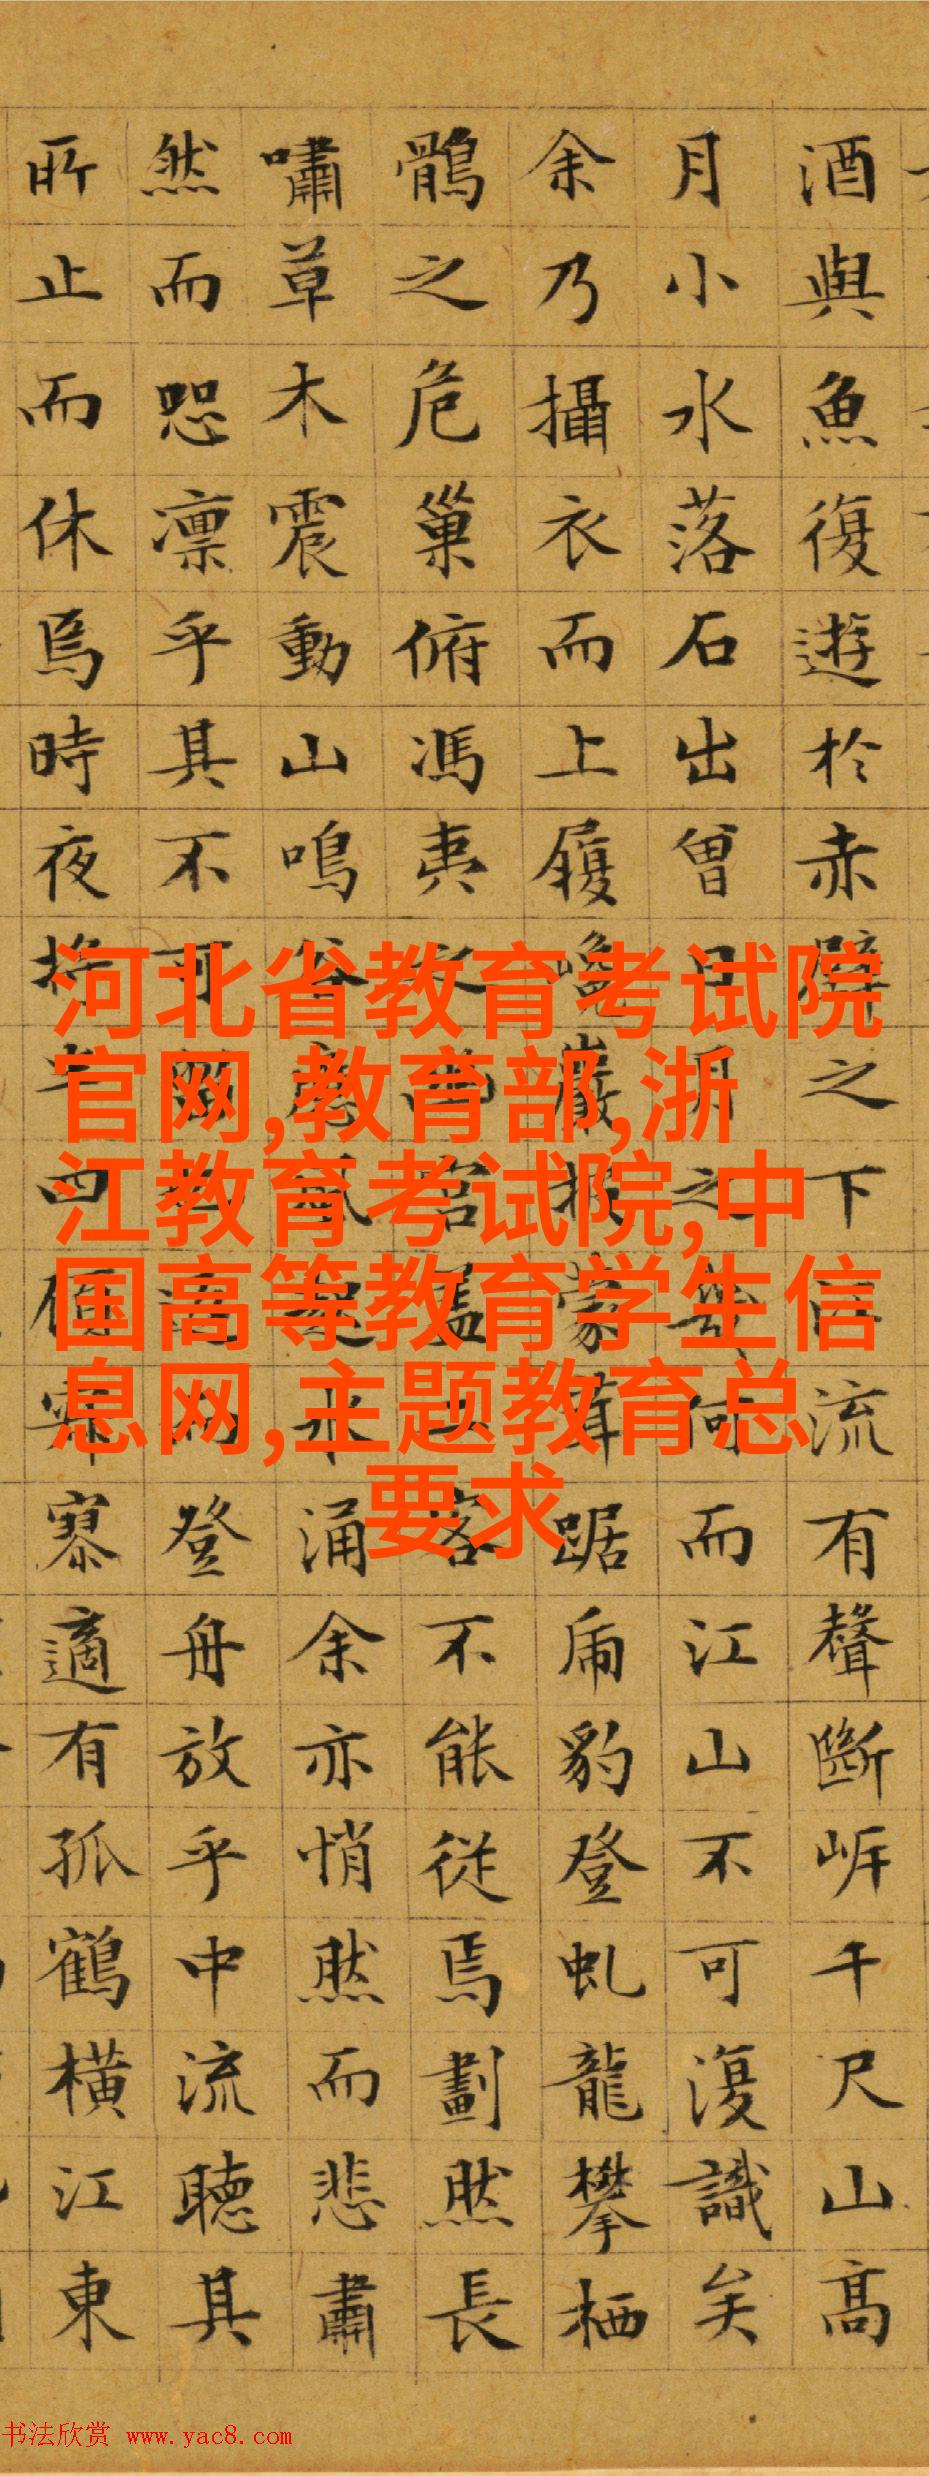 酒與魚復遊於赤壁之下江流有聲斷岸千尺山高
月小水落石出曾日月之幾何而江山不可復識矣
余乃攝衣而上履巉巖披蒙茸踞虎豹登虬龍攀栖
鶻之危巢俯馮夷之幽宮蓋二客不能從焉劃然長
嘯草木震動山鳴谷應風起水涌余亦悄然而悲肅
然而恐凛乎其不可留也反而登舟放乎中流聽其
所止而休焉時夜將半四顧寂寥適有孤鶴橫江東
河北省教育考试院
官网,教育部,浙
江教育考试院,中
国高等教育学生信
息网,主题教育总
要求
书法欣赏 www.yac8.com